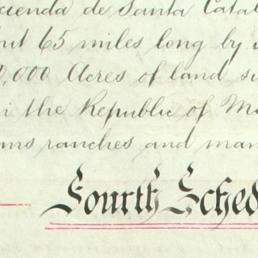 cienda de Santa Catal
out 65 miles long by
,000 Acres of land si
in the Republic of Me
ms ranches and man
Fourth Sched